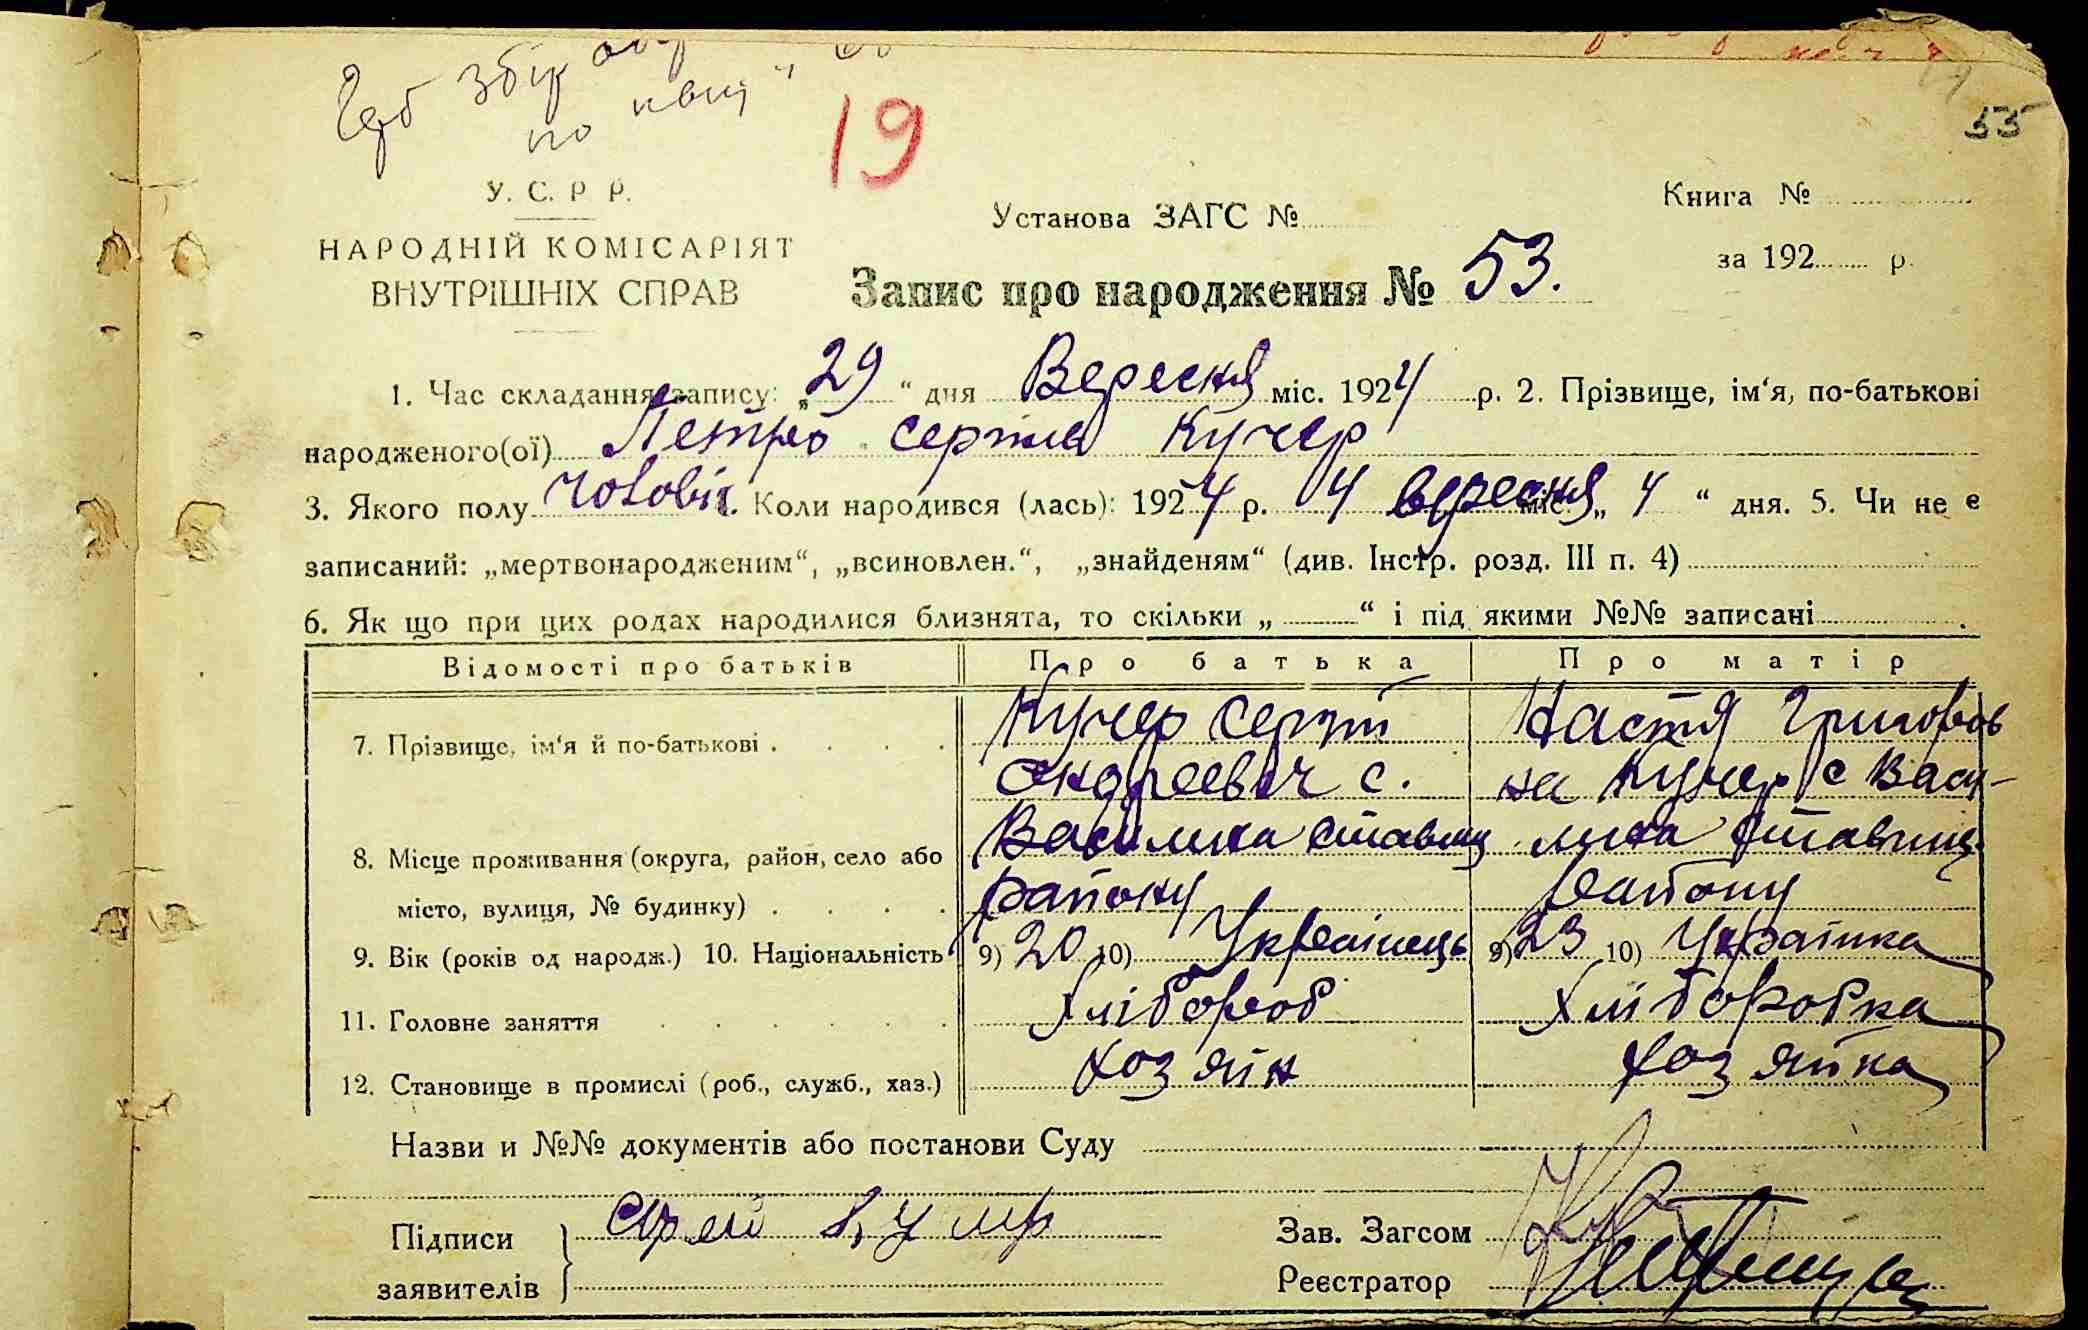 19
55
У. С. Р Р.
НАРОДНІЙ КОМІСАРІЯТ
ВНУТРІШНІХ СПРАВ
Установа ЗАГС №
Книга №
за 192 р.
Запис про народження № 53.
1. Час складання запису: „29“ дня Вересня міс. 1924 р. 2. Прізвище, ім‘я, по-батькові
народженого(ої) Петро Кучер
3. Якого полу чоловіч. Коли народився (лась): 1924 р. 4 вересня міс. „4“ дня. 5. Чи не є
записаний: „мертвонародженим“, „всиновлен.“, „знайденям“ (див. Інстр. розд. III п. 4)
6. Як що при цих родах народилися близнята, то скільки „ “ і під якими №№ записані
Відомості про батьків Про батька Про матір
7. Прізвище, ім‘я й по-батькові . . . . Кучер Сергій Настя Григоров
Андреевич с. на Кучер с Васи-
8. Місце проживання (округа, район, село або Василиха Ставищ лиха Ставищ.
місто, вулиця, № будинку) . . . . району району
9. Вік (років од народж.) 10. Національність 9) 20 10) Українець 9) 23 10) Українка
11. Головне заняття . . . . . Хлібороб Хліборобка
12. Становище в промислі (роб., служб., хаз.) хозяйн хозяйка
Назви и №№ документів або постанови Суду
Підписи
заявителів
Зав. Загсом
Реєстратор